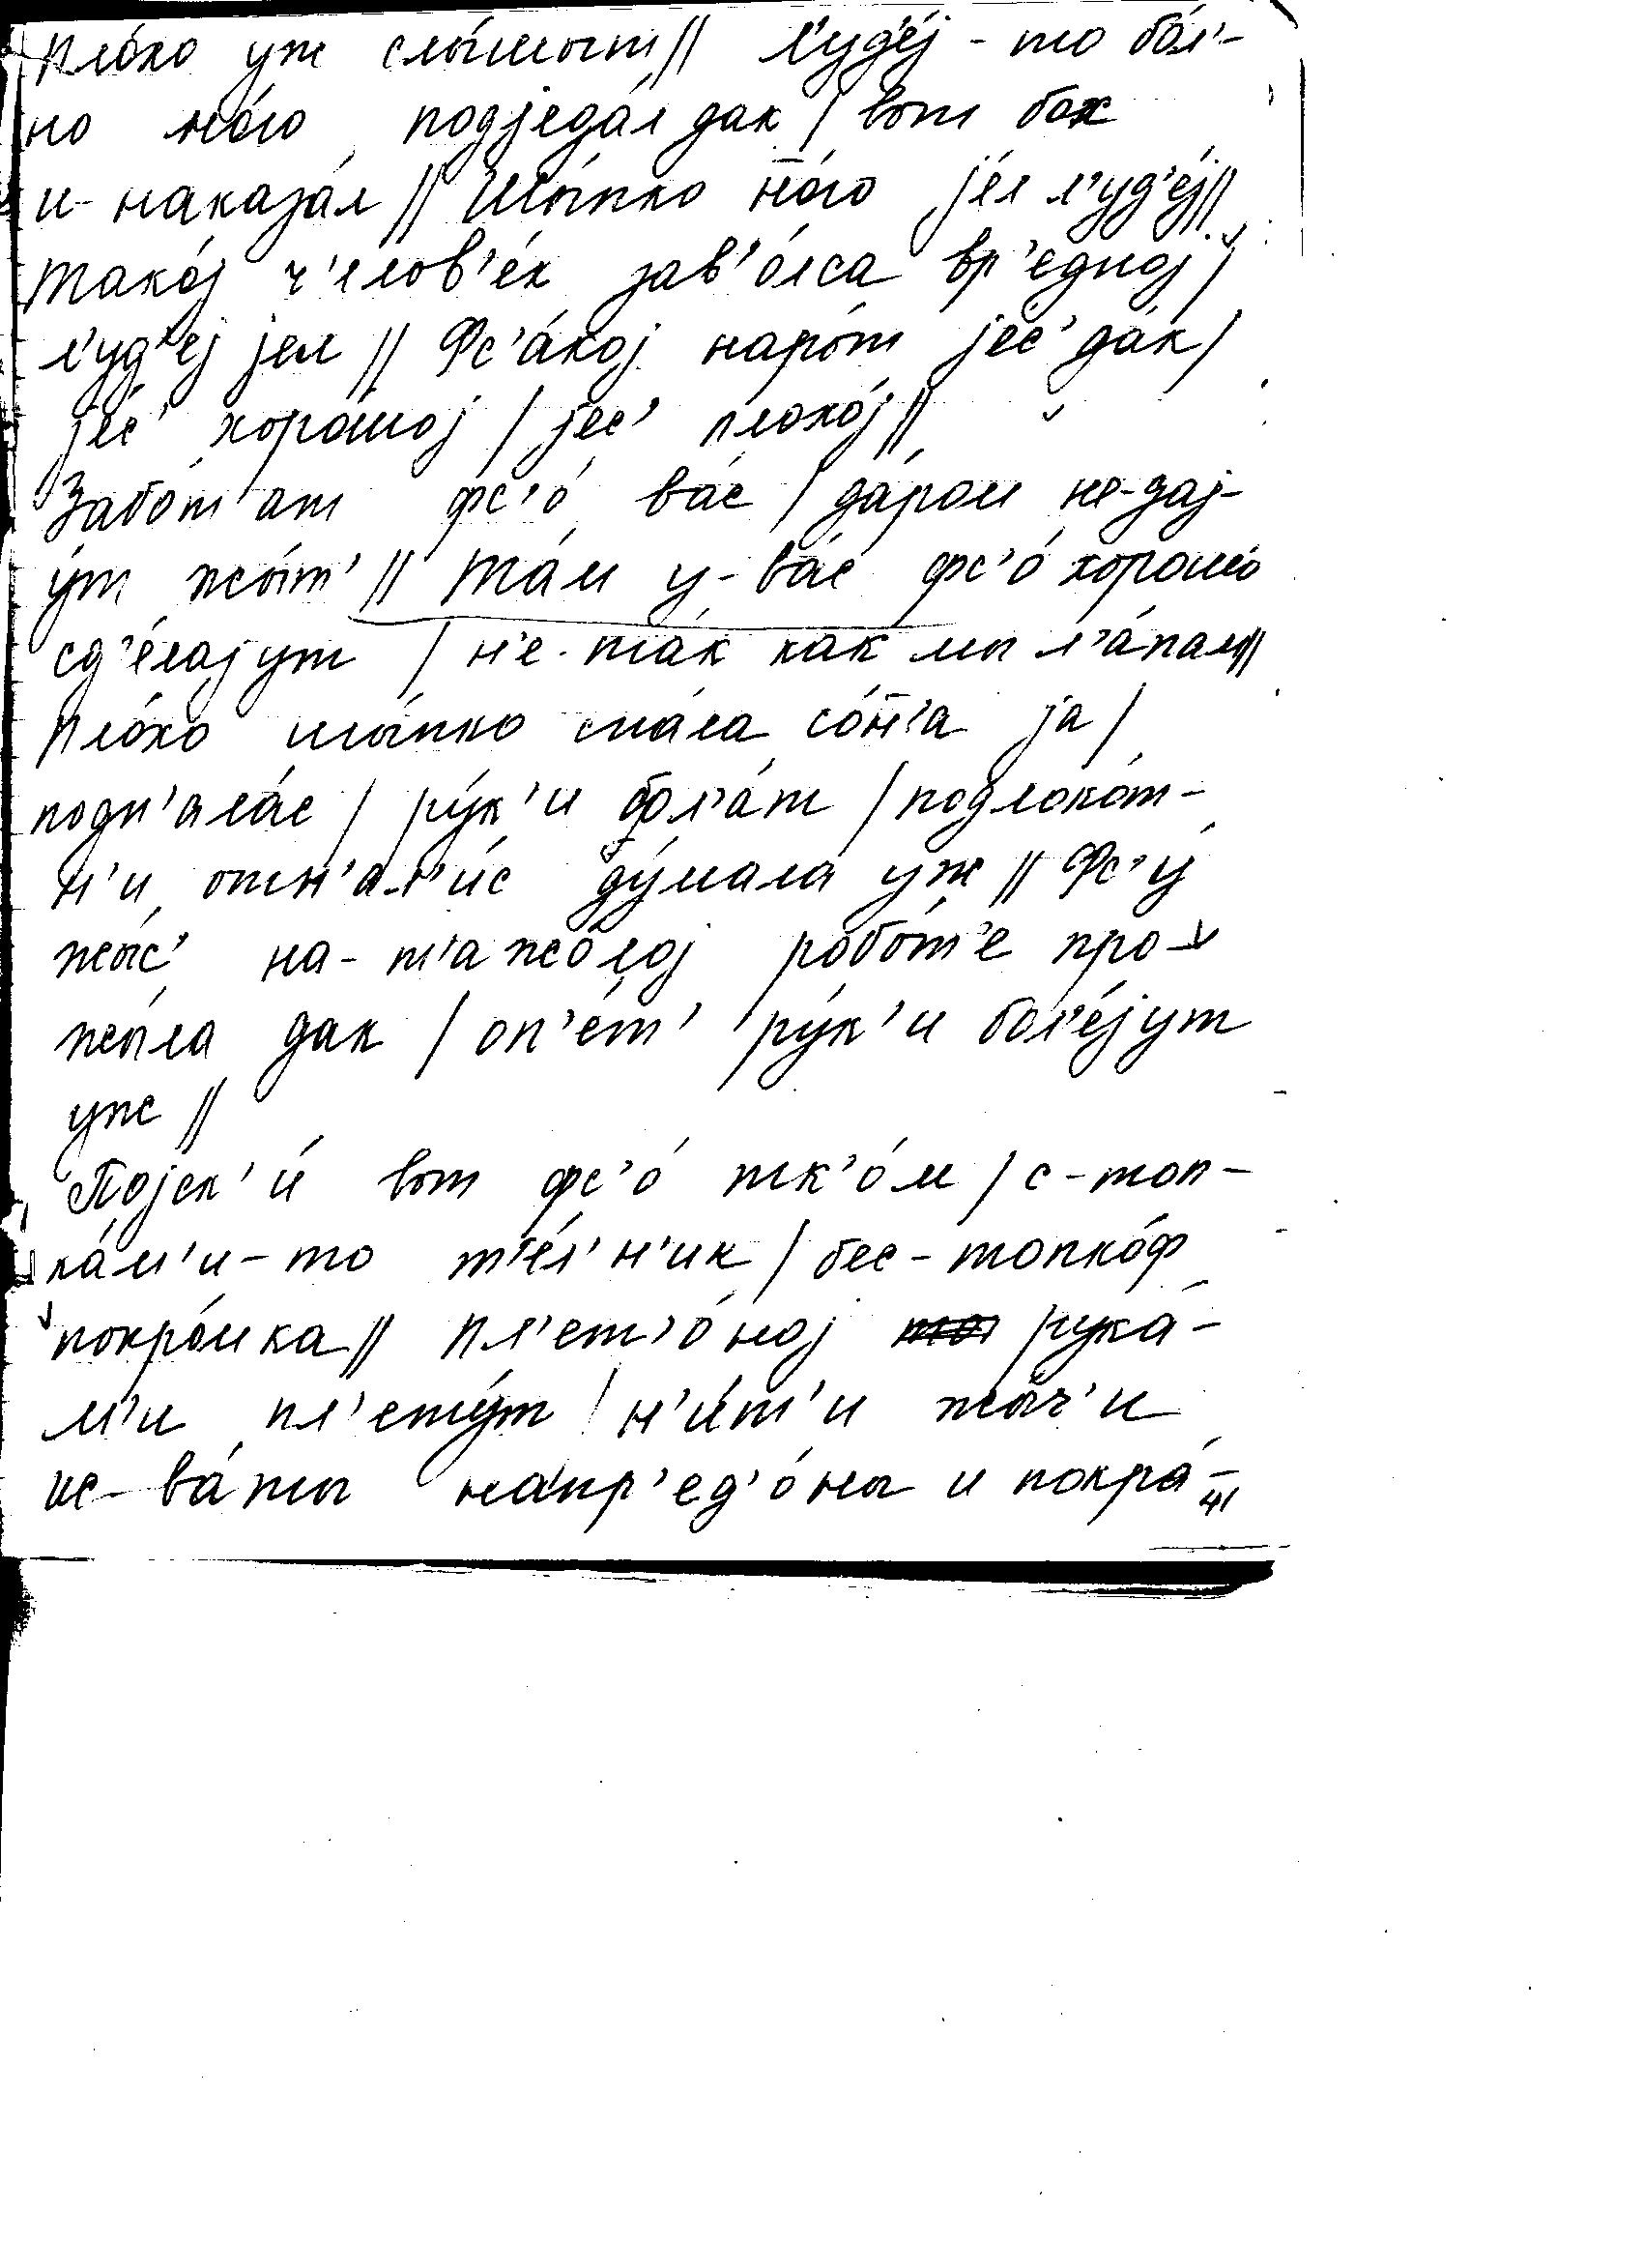 пло́хо уж слы́шыт // л'уд'е́j - то бо́л'-
но мно́го подjеда́л дак / вот бох
и- наказа́л // Шы́пко н̄о́го jе́л л'уд'е́j //
Тако́j ч'елов'е́к зав'о́лса вр'е́дноj /
л'уд'е́j jел // Фс'а́коj наро́т jес' да́к /
jе́с' хоро́шоj / jес' плохо́j //
Забо́т'ат фс'о́ ва́с / да́ром не-даj-
у́т жы́т' // Та́м у- ва́с фс'о́ хорошо́
сд'е́лаjут / н'е- та́к как мы л'а́пали //
Пло́хо шы́пко спала́ со́н̄'а jа /
подн'ала́с / ру́к'и бол'а́т / подлоко́т-
н'и отн'ал'и́с ду́мала уж // Фс'у́
жы́с' на- т'ажо́лоj робо́т'е про-
жы́ла дак / оп'е́т' ру́к'и бол'е́jут
уж //
Поjск'и́ вот фс'о́ тк'о́м / с-топ-
ка́м'и-то т'е́л'н'ик / бес-топко́ф
покро́мка // Пл'ет'о́ноj рука́-
м'и пл'ету́т / н'и́т'и жы́ч'и
ис-ва́ты напр'ед'о́ны и покра́-
41